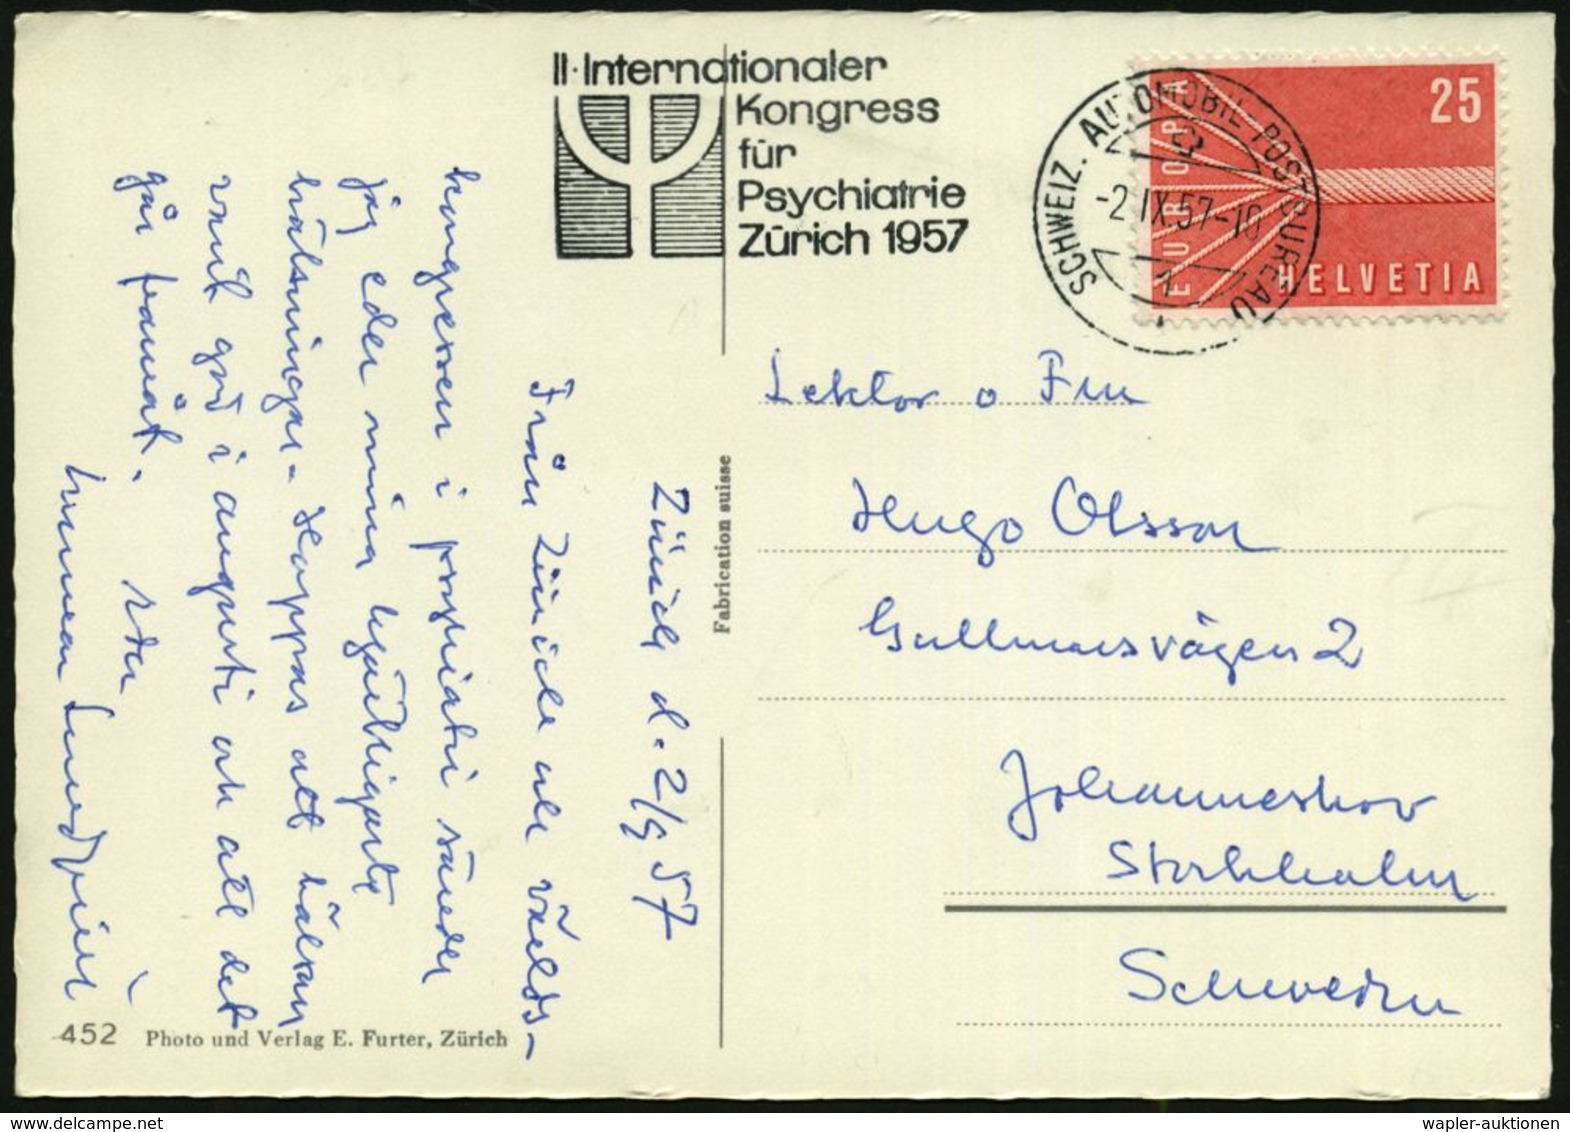 II. Internationaler
Kongress
für
Psychiatrie
Zürich 1957
SCHWEIZ. AUTOMOBIL-POSTBUREAU
-2.IX.57-10
1
EUROPA
25
HELVETIA
Zürich d. 2/9 57
Från Zürich och världs-
kongressen i psykiatri sänder
jag eder mina hjärtligaste
hälsningar. Hoppas att hälsan
varit god i augusti och att det
går framåt.
Eder
Fabrication suisse
Lektor o Fru
Hugo Olsson
Gullmarsvägen 2
Johanneshov
Stockholm
Schweden
452 Photo und Verlag E. Furter, Zürich
wapler-auktionen